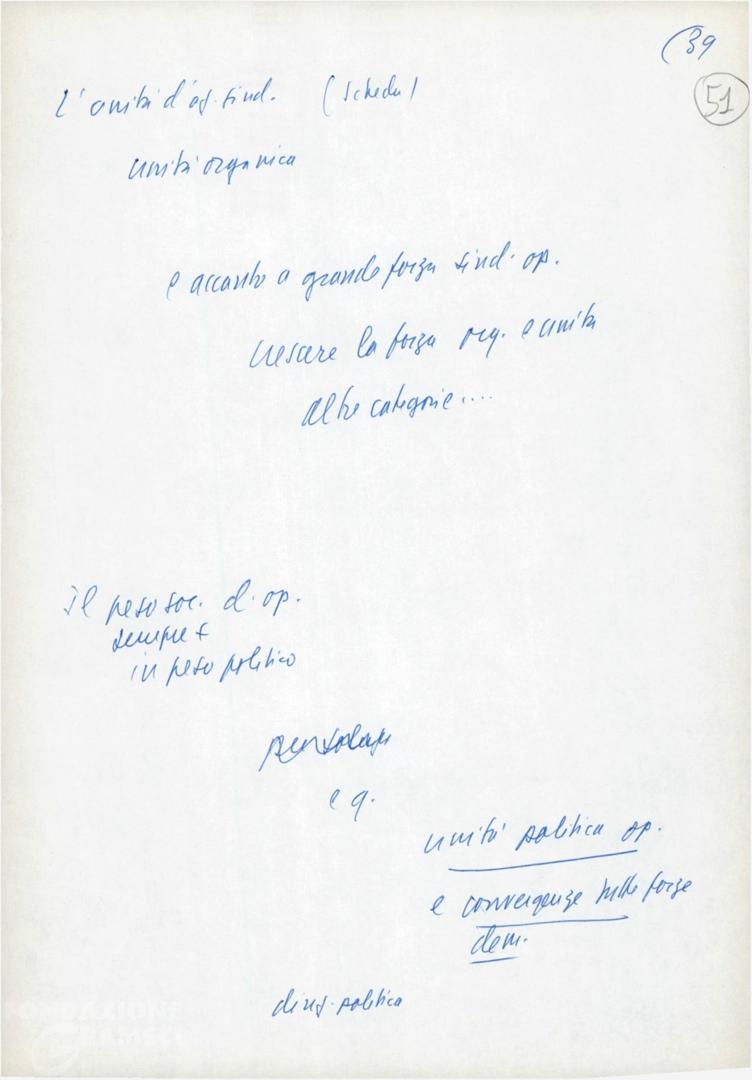 (39
51
L'unità d'az. sind. (scheda)
unità organica
e accanto a grande forza sind. op.
crescere la forza org. e unità
altre categorie....
Il peso soc. d. op.
sempre +
in peso politico
e q.
unità politica op.
e convergenze tutte forze
dem.
direz. politica
FONDAZIONE
GRAMSCI